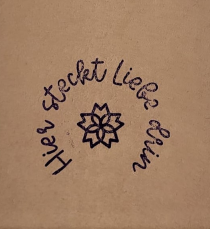 Hier steckt Liebe drin